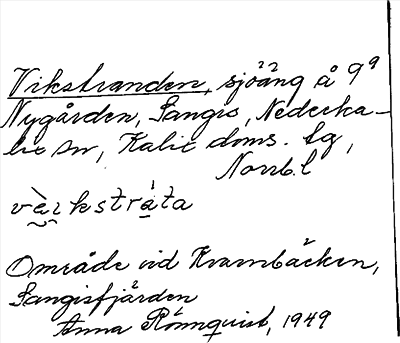 Vikstranden, sjöäng å 9⁹
Nygården, Sangis, Nederka-
lix sn, Kalix doms. lg,
Norrb. l
vɛ̀ɪkstrȧ́ta
Område vid Kvarnbäcken,
Sangisfjärden
Anna Rönnquist, 1949